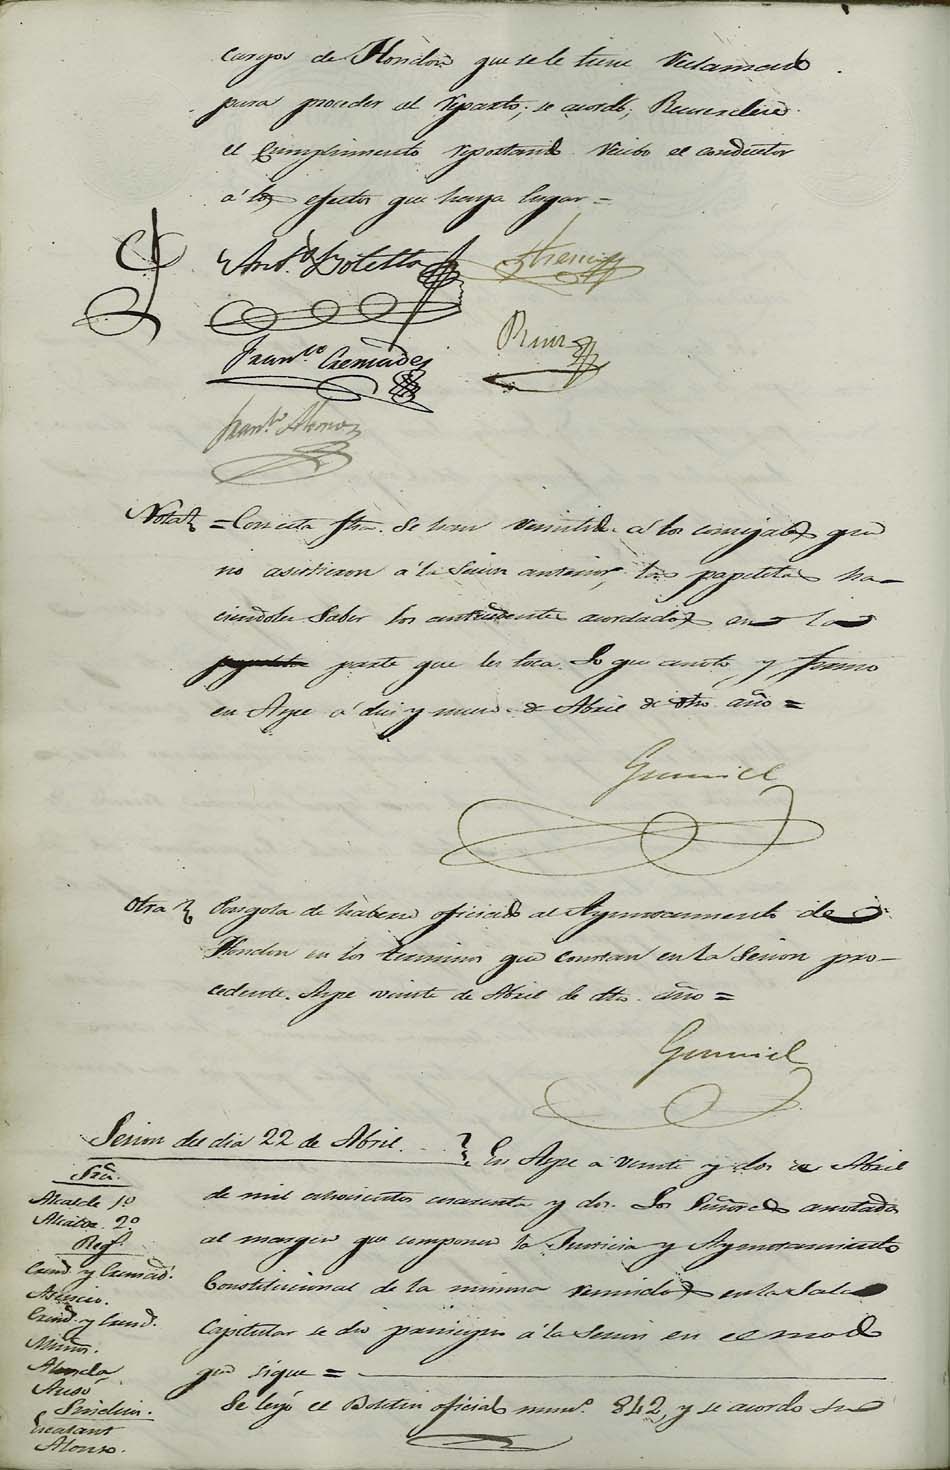 cargos de Hondon que se le tiene reclamado
para proceder al reparto; se acordó;
el cumplimiento reportando recibo el conductor
á los efectos que haya lugar =
Ant.º Botella
Asencio
Fran.co Cremades
Fran.co Alonso
Nota = Con esta fha. se han remitido á los concejales que
no asistieron á la Secion anterior, las papeletas ha-
ciendoles saber los antecedentes acordados en la
parte que les toca. Lo que anoto, y firmo
en Aspe á diez y nueve de Abril de dho año =
Gumiel
Otra Pongola de haberse oficiado al Ayuntamiento de
Hondon en los terminos que constan en la Secion pre-
cedente. Aspe veinte de Abril de dho. año =
Gumiel
Secion del dia 22 de Abril.
En Aspe a veinte y dos de Abril
de mil ochocientos cuarenta y dos. Los Señores anotados
al margen que componen la Justicia y Ayuntamiento
Constitucional de la misma reunidos en la Sala
Capitular se dio principio á la Secion en el modo
que sigue =
Se leyó el Boletin oficial num.º 842, y se acordo su
Alcalde 1º
Alcalde 2º
Reg.s
Cand. y Cremad.
Asencio.
Cand. y Cand.
Muñoz.
Ausó
Sindicos.
Alonso.